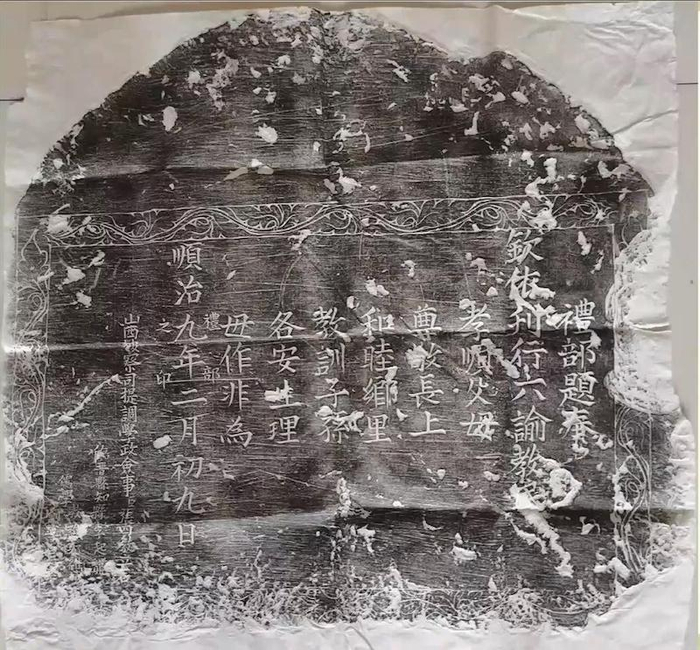 禮部題奉
欽依刊行六諭教
孝順父母
尊敬長上
和睦鄉里
教訓子孫
各安生理
毋作非為
禮部之印
順治九年二月初九日
山西按察司提調學政僉事張
縣知縣